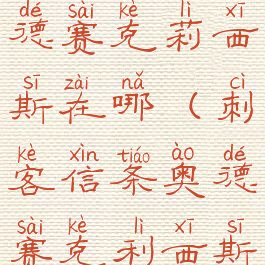 dé sài kè lì xī
德赛克莉西
sī zài nǎ cì
斯在哪（刺
kè xìn tiáo ào dé
客信条奥德
sài kè lì xī sī
赛克利西斯